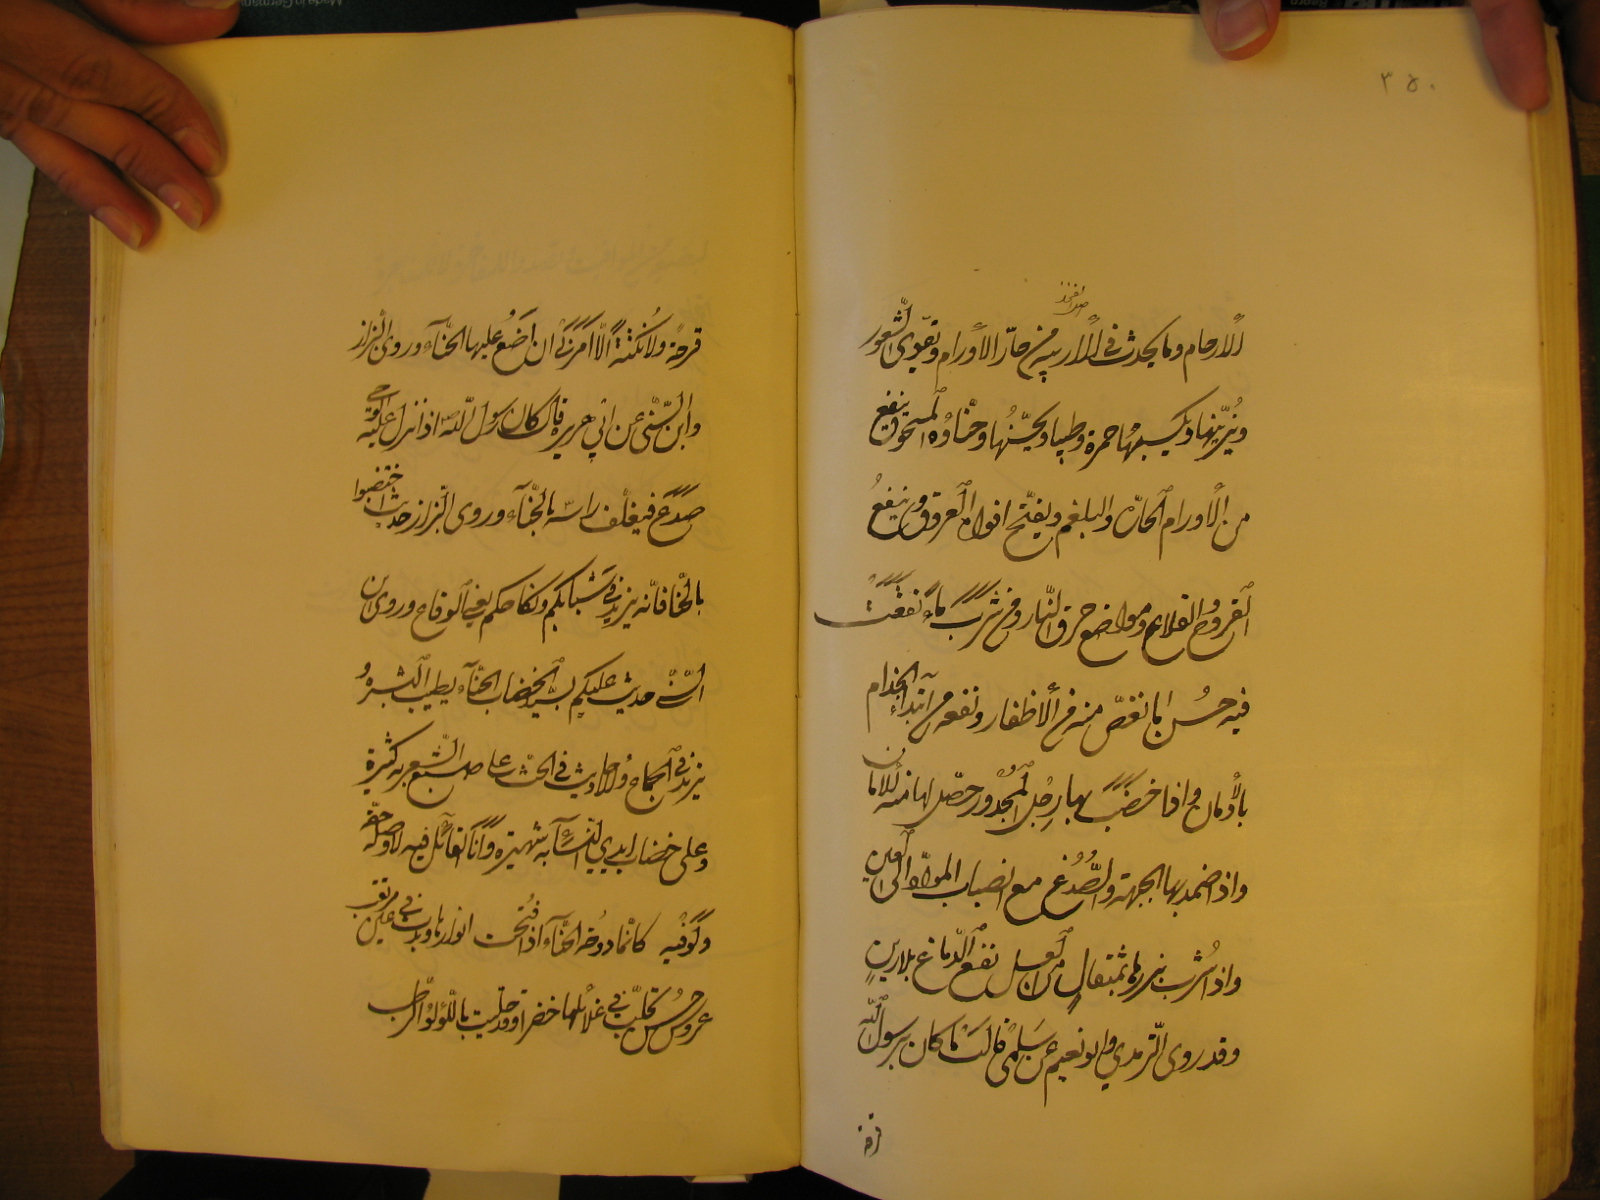 ٣٥٠
الارحام وما يحدث فى الاربيه من حارّ الاورام وتقوى الشعور
ويُزيّنها ويكسبها حمرة وطيبا ويحسّنها وحنّاؤه المسحوق ينفع
من الأورام الحارّه والبلغم ويفتّح افواه العروق وينفعُ
القروح والقلاع ومواضع حرق النّار ومن شرب ماء نقعت
فيه حسُن ما نغصّ منه من ألاظفار ونفعه من ابتداء الجذام
بالأدمان واذا خضب بها رِجل المجدور حصّل لها منه الامان
واذا ضمد بها الجبهة والصُّدُغ مع انصباب الموادّ الى العين
واذا شُرب بزرها بمثقال من العسل نفع الدّماغ بلا رين
وقد روى الترمدي وابو نعيم عن سَلمى قالت ما كان برسول الله
قرحة ولا نكتة الّا امرنى ان اضع عليها الحنّآء وروى البزاز
وابن السّنّى عن ابي هريره قال كان رسول الله اذا نزل عليه الوحى
صدع فيغلف راسه بالحنّآء وروى البّزاز حديث اختضبوا
بالحّنا فانّه يزيد فى شبابكم ونكاحكم يعنى الوقاح وروى ابن
السّنّى حديث عليكم بسيّد الخضاب الحنّآء يطيب البشرهُ
يزيد فى الجماع والاحاديث فى الحثّ على صبغ الشّعر به كثيرة
وعلى خضاب ايدي النسآء به شهيره وانا القائل فيه لاوصله حقّه
وكوفيه كانما دوحة الحنّآء اذا فُتحت انوارها وبدت فى عين مرتقب
عروس حُسن تجلّت فى غلائلها خضرا وقد حليت باللؤلؤ الرّطب